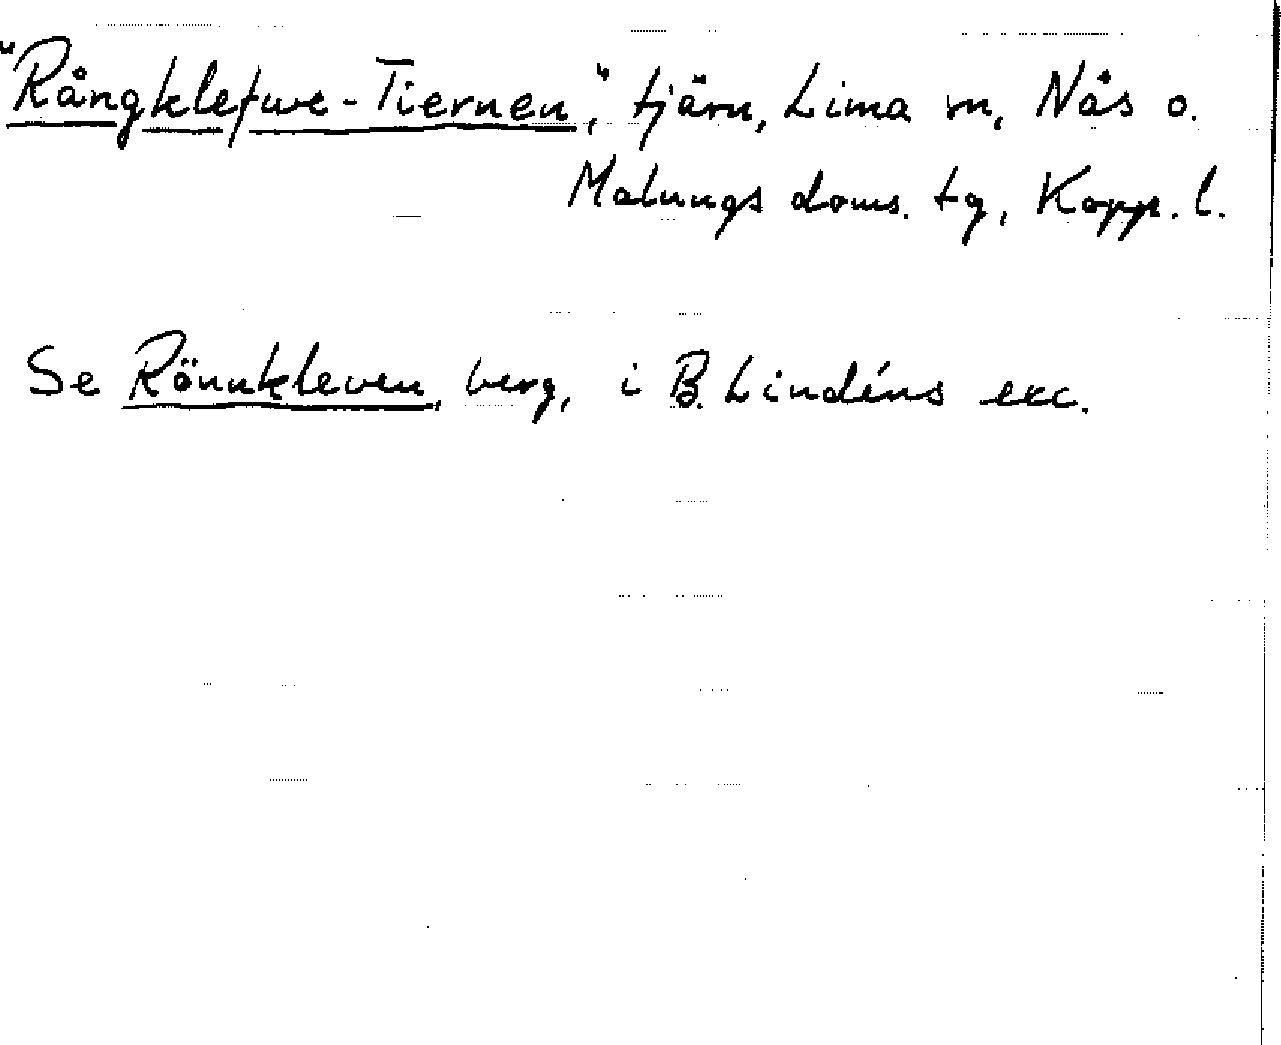 "Rångklefwe-Tiernen", tjärn, Lima sn, Nås o.
Malungs doms. tg, Kopp. l.
Se Rönnkleven, berg, i B. Lindéns exc.